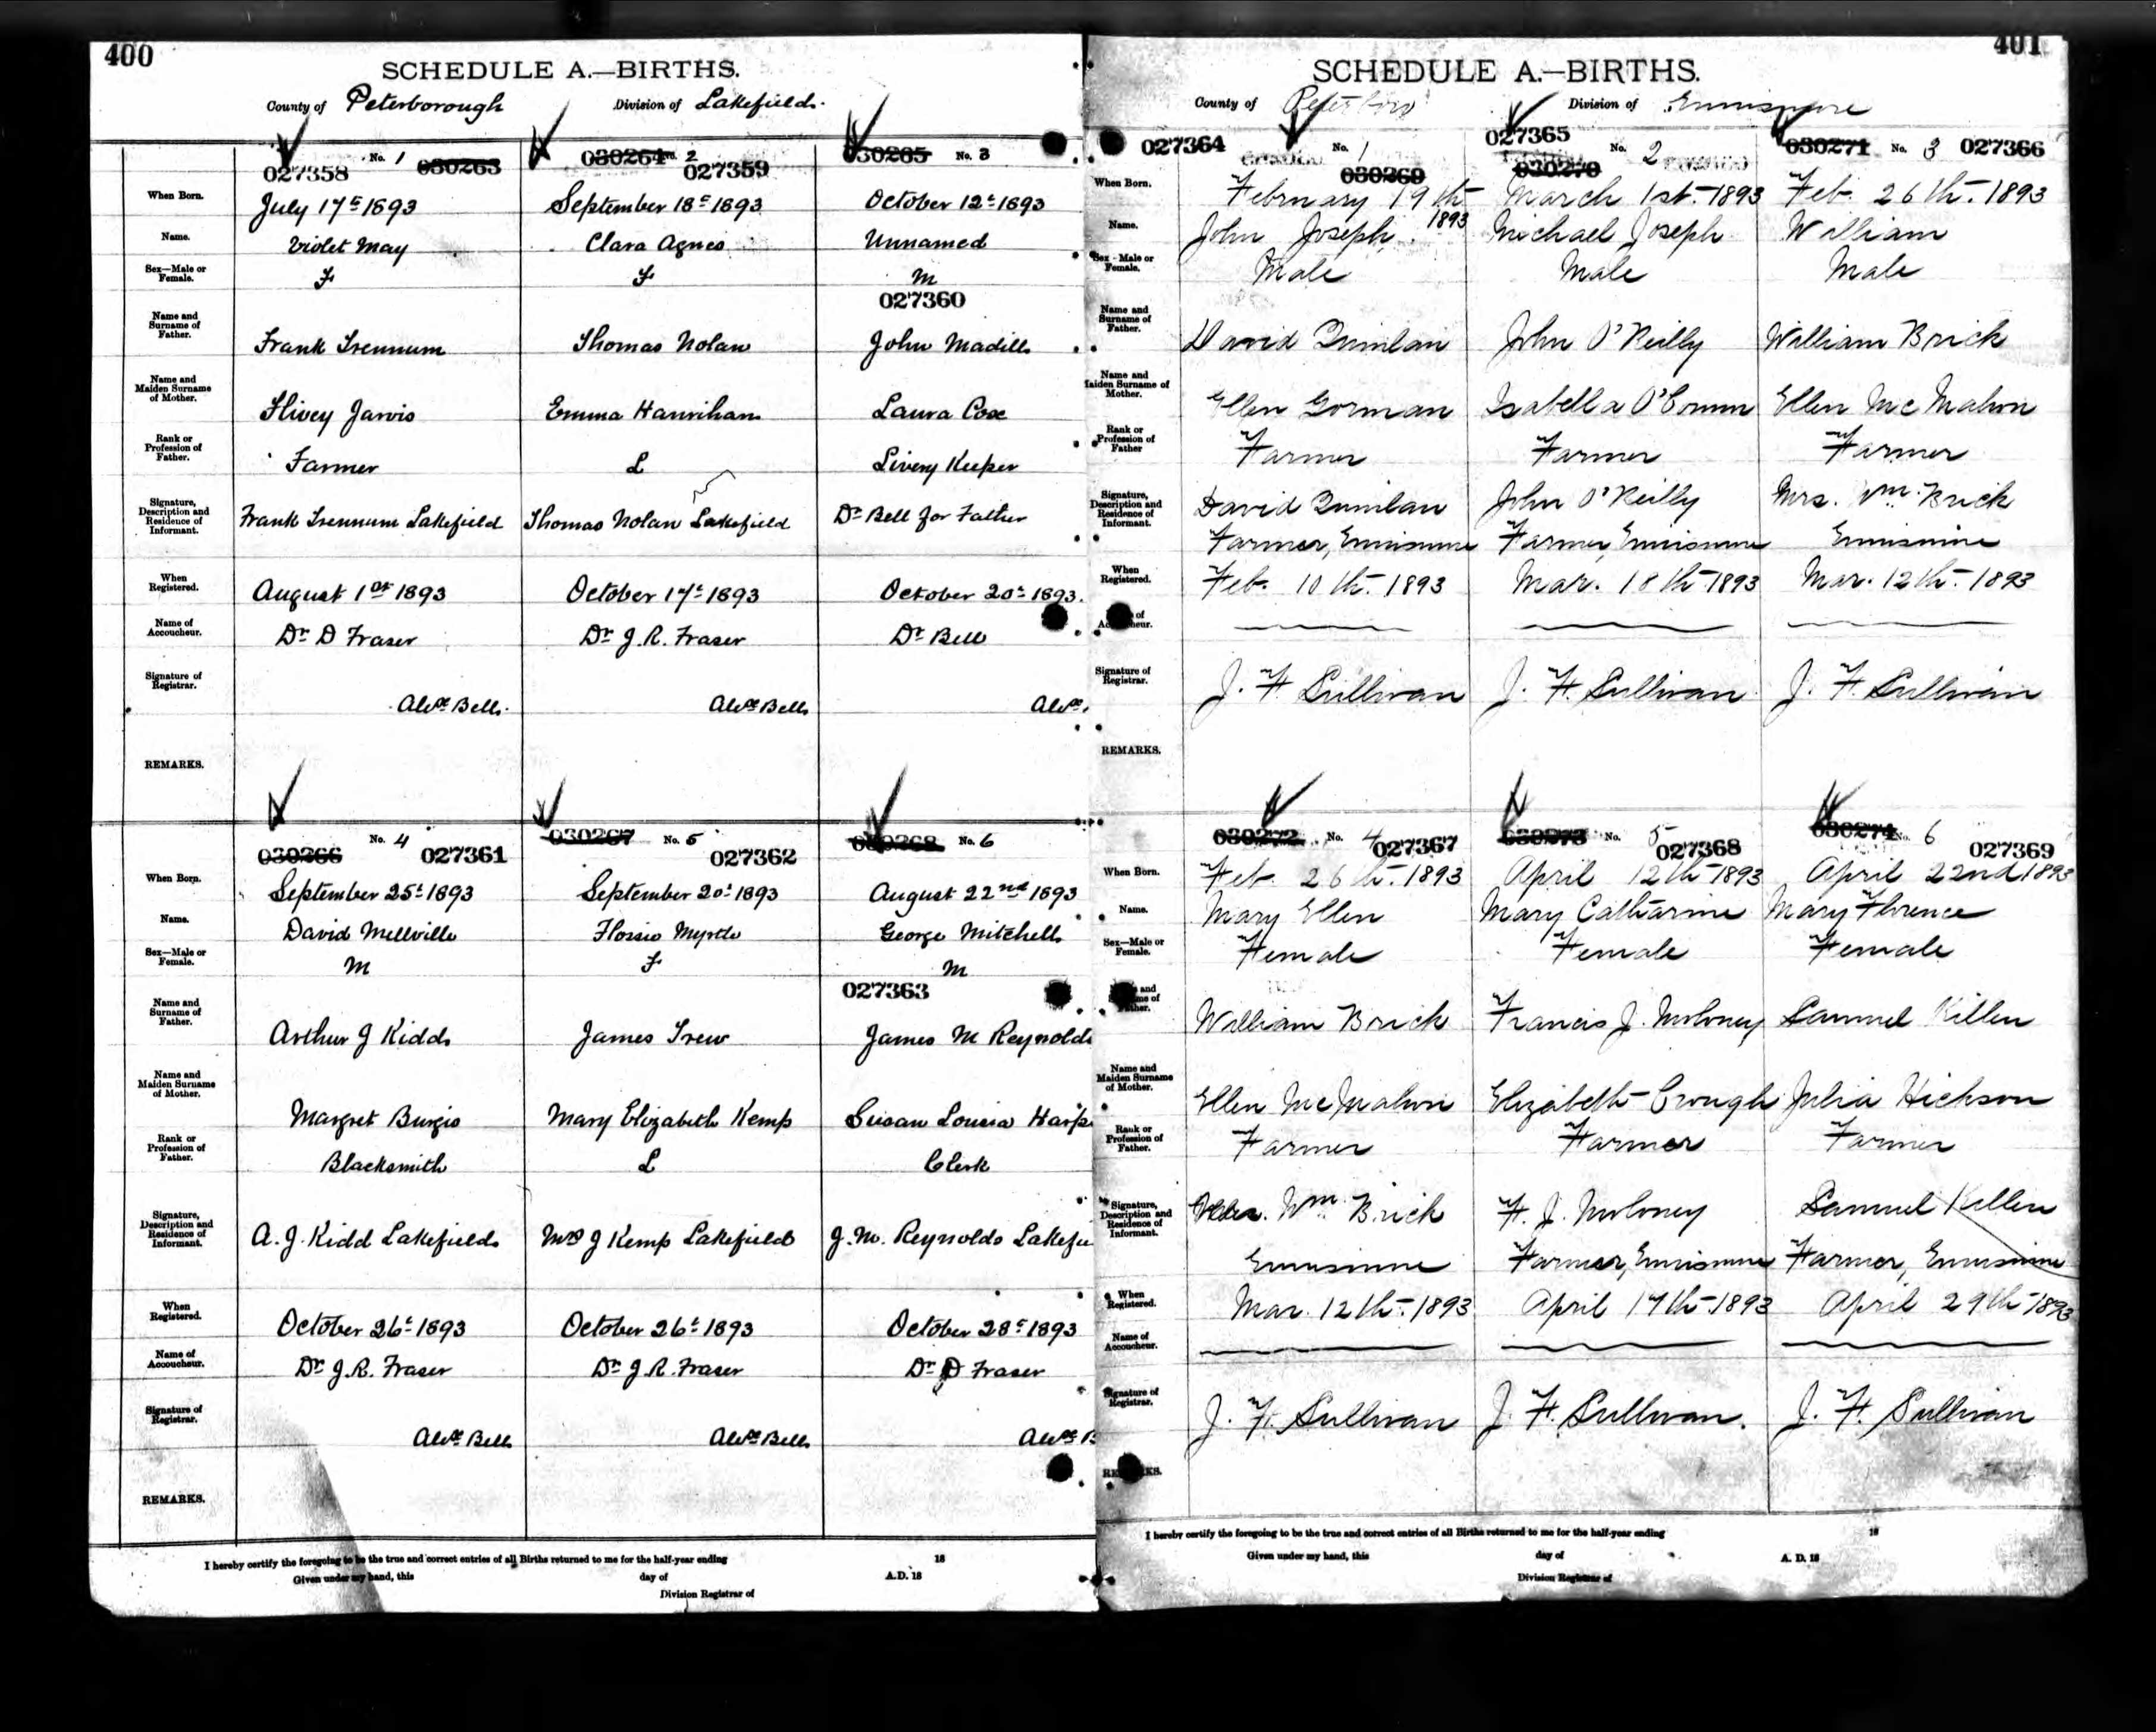 400
SCHEDULE A.—BIRTHS.
County of Peterborough Division of Lakefield.
No. 1 030263 030264 No. 2 030265 No. 3
027358 027359
When Born. July 17t 1893 September 18t 1893 October 12t 1893
Name. Violet May Clara Agnes Unnamed
Sex—Male or Female. F F M
027360
Name and Surname of Father. Frank Trennum Thomas Nolan John Madill
Name and Maiden Surname of Mother. Jarvis Emma Hanrihan Laura Cox
Rank or Profession of Father. Farmer L Livery Keeper
Signature, Description and Residence of Informant. Frank Trennum Lakefield Thomas Nolan Lakefield Dr Bell for Father
When Registered. August 1st 1893 October 17t 1893 October 20t 1893.
Name of Accoucheur. Dr D Fraser Dr J. R. Fraser Dr Bell
Signature of Registrar. Alexr Bell. Alexr Bell Alexr
REMARKS.
030266 No. 4 027361 030267 No. 5 027362 030268 No. 6
When Born. September 25t 1893 September 20t 1893 August 22nd 1893
Name. David Mellville Flossie Myrtle George Mitchell
Sex—Male or Female. M F M
027363
Name and Surname of Father. Arthur J Kidd James Trew James M Reynolds
Name and Maiden Surname of Mother. Margret Burgis Mary Elizabeth Kemp Susan Louisa Harp
Rank or Profession of Father. Blacksmith L Clerk
Signature, Description and Residence of Informant. A. J. Kidd Lakefield Mrs J Kemp Lakefield J. M. Reynolds Lakefie
When Registered. October 26t 1893 October 26t 1893 October 28t 1893
Name of Accoucheur. Dr J. R. Fraser Dr J. R. Fraser Dr D Fraser
Signature of Registrar. Alexr Bell Alexr Bell Alexr B
REMARKS.
I hereby certify the foregoing to be the true and correct entries of all Births returned to me for the half-year ending 18
Given under my hand, this day of A.D. 18
Division Registrar of
401
SCHEDULE A.—BIRTHS.
County of Peterboro Division of Ennismore
027364 No. 1 030269 027365 030270 No. 2 030271 No. 3 027366
When Born. February 19th 1893 March 1st. 1893 Feb. 26th. 1893
Name. John Joseph Michael Joseph William
Sex - Male or Female. Male Male Male
Name and Surname of Father. David Quinlan John O'Reilly William Brick
Name and Maiden Surname of Mother. Ellen Gorman Isabella O'Connor Ellen McMahon
Rank or Profession of Father Farmer Farmer Farmer
Signature, Description and Residence of Informant. David Quinlan John O'Reilly Mrs. Wm. Brick
Farmer, Ennismore Farmer, Ennismore Ennismore
When Registered. Feb. 10th. 1893 Mar. 18th 1893 Mar. 12th. 1893
of Accoucheur.
Signature of Registrar. J. F. Sullivan J. F. Sullivan J. F. Sullivan
REMARKS.
030272 No. 4 027367 030273 No. 5 027368 030274 No. 6 027369
When Born. Feb. 26th. 1893 April 12th 1893 April 22nd 1893
Name. Mary Ellen Mary Catharine Mary Florence
Sex—Male or Female. Female Female Female
and Surname of Father. William Brick Francis J. Moloney Samuel Killen
Name and Maiden Surname of Mother. Ellen McMahon Elizabeth Crough Julia Hickson
Rank or Profession of Father. Farmer Farmer Farmer
Signature, Description and Residence of Informant. Wm. Brick F. J. Moloney Samuel Killen
Ennismore Farmer, Ennismore Farmer, Ennismore
When Registered. Mar. 12th. 1893 April 17th 1893 April 29th 1893
Name of Accoucheur.
Signature of Registrar. J. F. Sullivan J. F. Sullivan. J. F. Sullivan
REMARKS.
I hereby certify the foregoing to be the true and correct entries of all Births returned to me for the half-year ending 18
Given under my hand, this day of A. D. 18
Division Registrar of